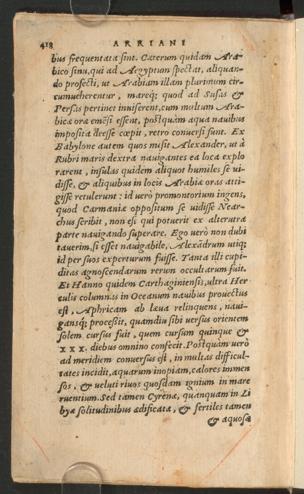 418 ARRIANI
bus frequentata sint. Cæterum quidam Ara-
bico sinu, qui ad Aegyptum spectat, aliquan-
do profecti, ut Arabiam illam plurimum cir-
cumueherentur, mareq; quod ad Susas &
Persas pertinet inuiserent, cum multum Ara-
bicæ oræ emẽsi essent, postquàm aqua nauibus
imposita deesse cœpit, retro conuersi sunt. Ex
Babylone autem quos misit Alexander, ut à
Rubri maris dextra nauigantes ea loca explo
rarent, insulas quidem aliquot humiles se ui-
disse, & aliquibus in locis Arabiæ oras atti-
gisse retulerunt: id uerò promontorium ingens,
quod Carmaniæ oppositum se uidisse Near-
chus scribit, non est qui potuerit ex alterutra
parte nauigando superare. Ego uerò non dubi
tauerim, si esset nauigabile, Alexãdrum utiq;
id per suos experturum fuisse. Tanta illi cupi-
ditas agnoscendarum rerum occultarum fuit.
Et Hanno quidem Carthaginiensis, ultra Her
culis columnas in Oceanum nauibus prouectus
est, Aphricam ab læua relinquens, naui-
gansq; processit, quamdiu sibi uersus orientem
solem cursus fuit, quem cursum quinque &
XXX. diebus omnino confecit. Postquàm uerò
ad meridiem conuersus est, in multas difficul-
tates incidit, aquarum inopiam, calores immen
sos, & ueluti riuos quosdam ignium in mare
ruentium. Sed tamen Cyrenæ, quanquam in Li
byæ solitudinibus ædificata, & fertiles tamen
& aquosæ